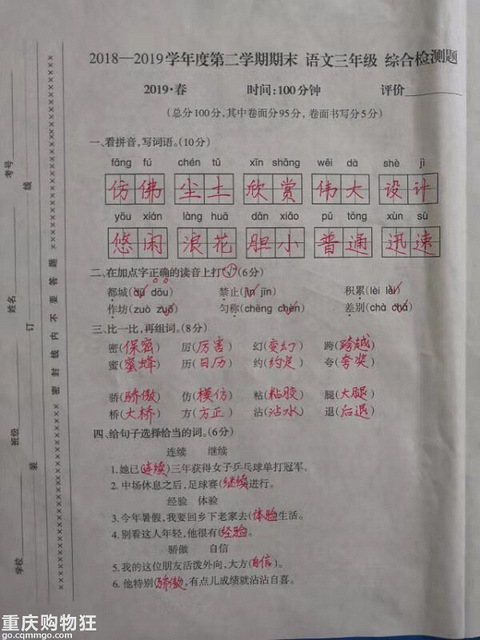 2018—2019学年度第二学期期末 语文三年级 综合检测题
2019·春 时间:100分钟 评价
(总分100分,其中卷面分95分,卷面书写5分)
一、看拼音,写词语。(10分)
fǎng fú chén tǔ xīn shǎng wěi dà shè jì
仿佛 尘土 欣赏 伟大 设计
yōu xián làng huā dǎn xiǎo pǔ tōng xùn sù
悠闲 浪花 胆小 普通 迅速
二、在加点字正确的读音上打√(6分)
都城(dū dōu) 禁止(jìn jīn) 积累(lěi lèi)
作坊(zuò zuō) 匀称(chēng chèn) 差别(chà chā)
三、比一比,再组词。(8分)
密(保密) 厉(厉害) 幻(变幻) 跨(跨越)
蜜(蜜蜂) 历(日历) 约(约定) 夸(夸奖)
骄(骄傲) 仿(模仿) 粘(粘胶) 腿(大腿)
桥(大桥) 方(方正) 沾(沾水) 退(后退)
四、给句子选择恰当的词。(6分)
连续 继续
1.她已(连续)三年获得女子乒乓球单打冠军。
2.中场休息之后,足球赛(继续)进行。
经验 体验
3.今年暑假,我要回乡下老家去(体验)生活。
4.别看这人年轻,他很有(经验)。
骄傲 自信
5.我的这位朋友活泼外向,大方(自信)。
6.他特别(骄傲),有点儿成绩就沾沾自喜。
考号
姓名
班级
学校
密封线内不要答题
线
订
装
重庆购物狂
go.cqmmgo.com